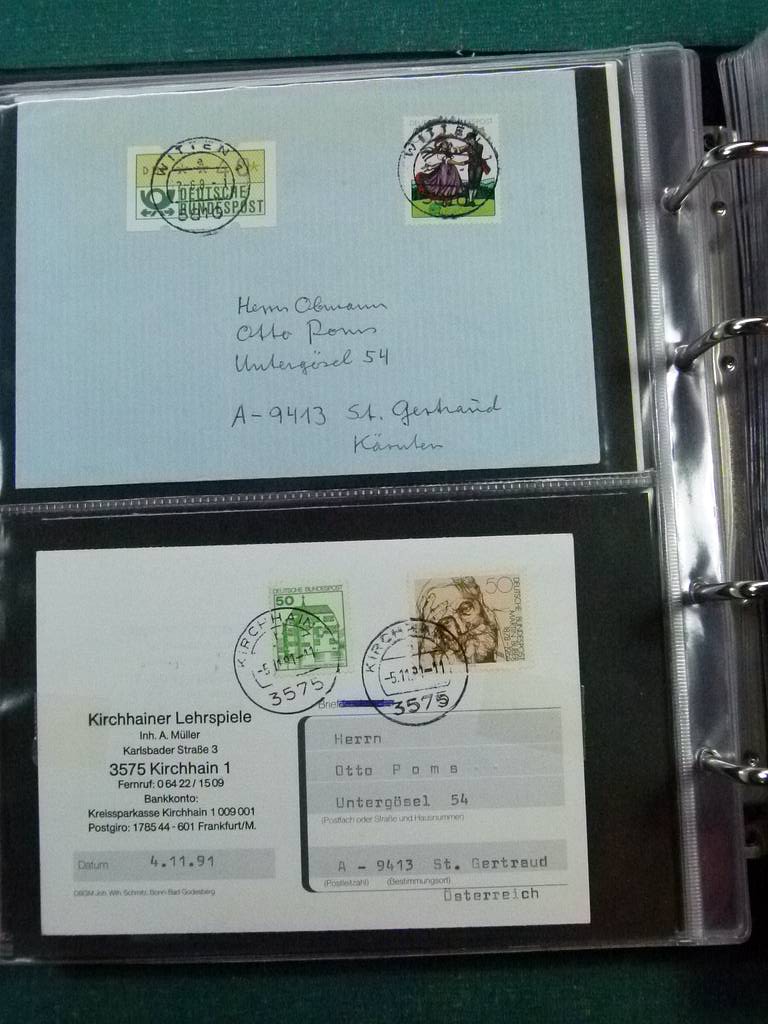 WITTEN
DEUTSCHE
BUNDESPOST
WITTEN 1
Herrn Obmann
Otto Poms
Untergösel 54
A-9413 St. Gertraud
Kärnten
DEUTSCHE BUNDESPOST
50
KIRCHHAIN 1
-5.11.91-11
3575
50
DEUTSCHE BUNDESPOST
MARTIN BUBER
KIRCHHAIN
-5.11.91-11
3575
Kirchhainer Lehrspiele
Inh. A. Müller
Karlsbader Straße 3
3575 Kirchhain 1
Fernruf: 0 64 22 / 15 09
Bankkonto:
Kreissparkasse Kirchhain 1 009 001
Postgiro: 1785 44 - 601 Frankfurt/M.
Datum 4.11.91
DBGM Joh. Wilh. Schmitz, Bonn-Bad Godesberg
Herrn
Otto Poms
Untergösel 54
(Postfach oder Straße und Hausnummer)
A - 9413 St. Gertraud
(Postleitzahl) (Bestimmungsort)
Österreich